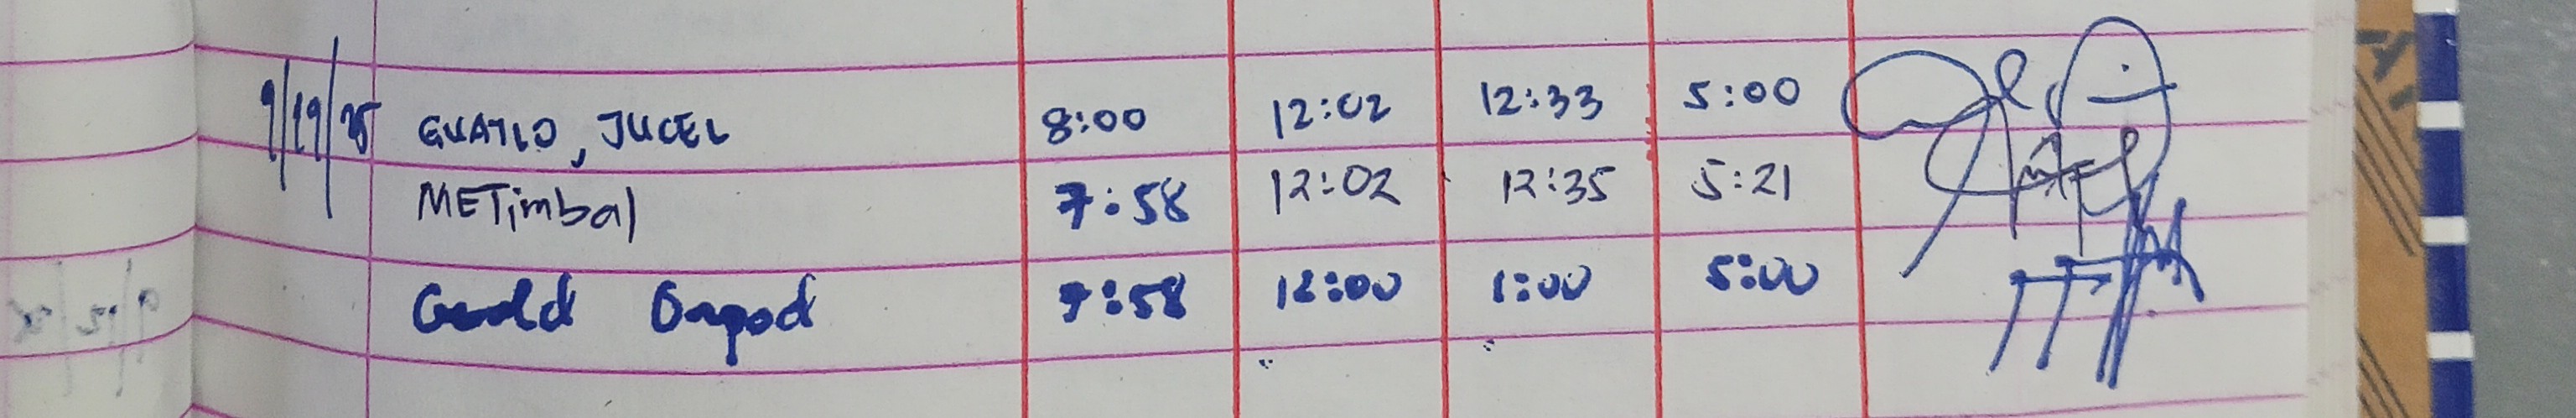 9/19/25 GUATLO, JUCEL 8:00 12:02 12:33 5:00
METimbal 7:58 12:02 12:35 5:21
Gerald Ongod 7:58 12:00 1:00 5:00